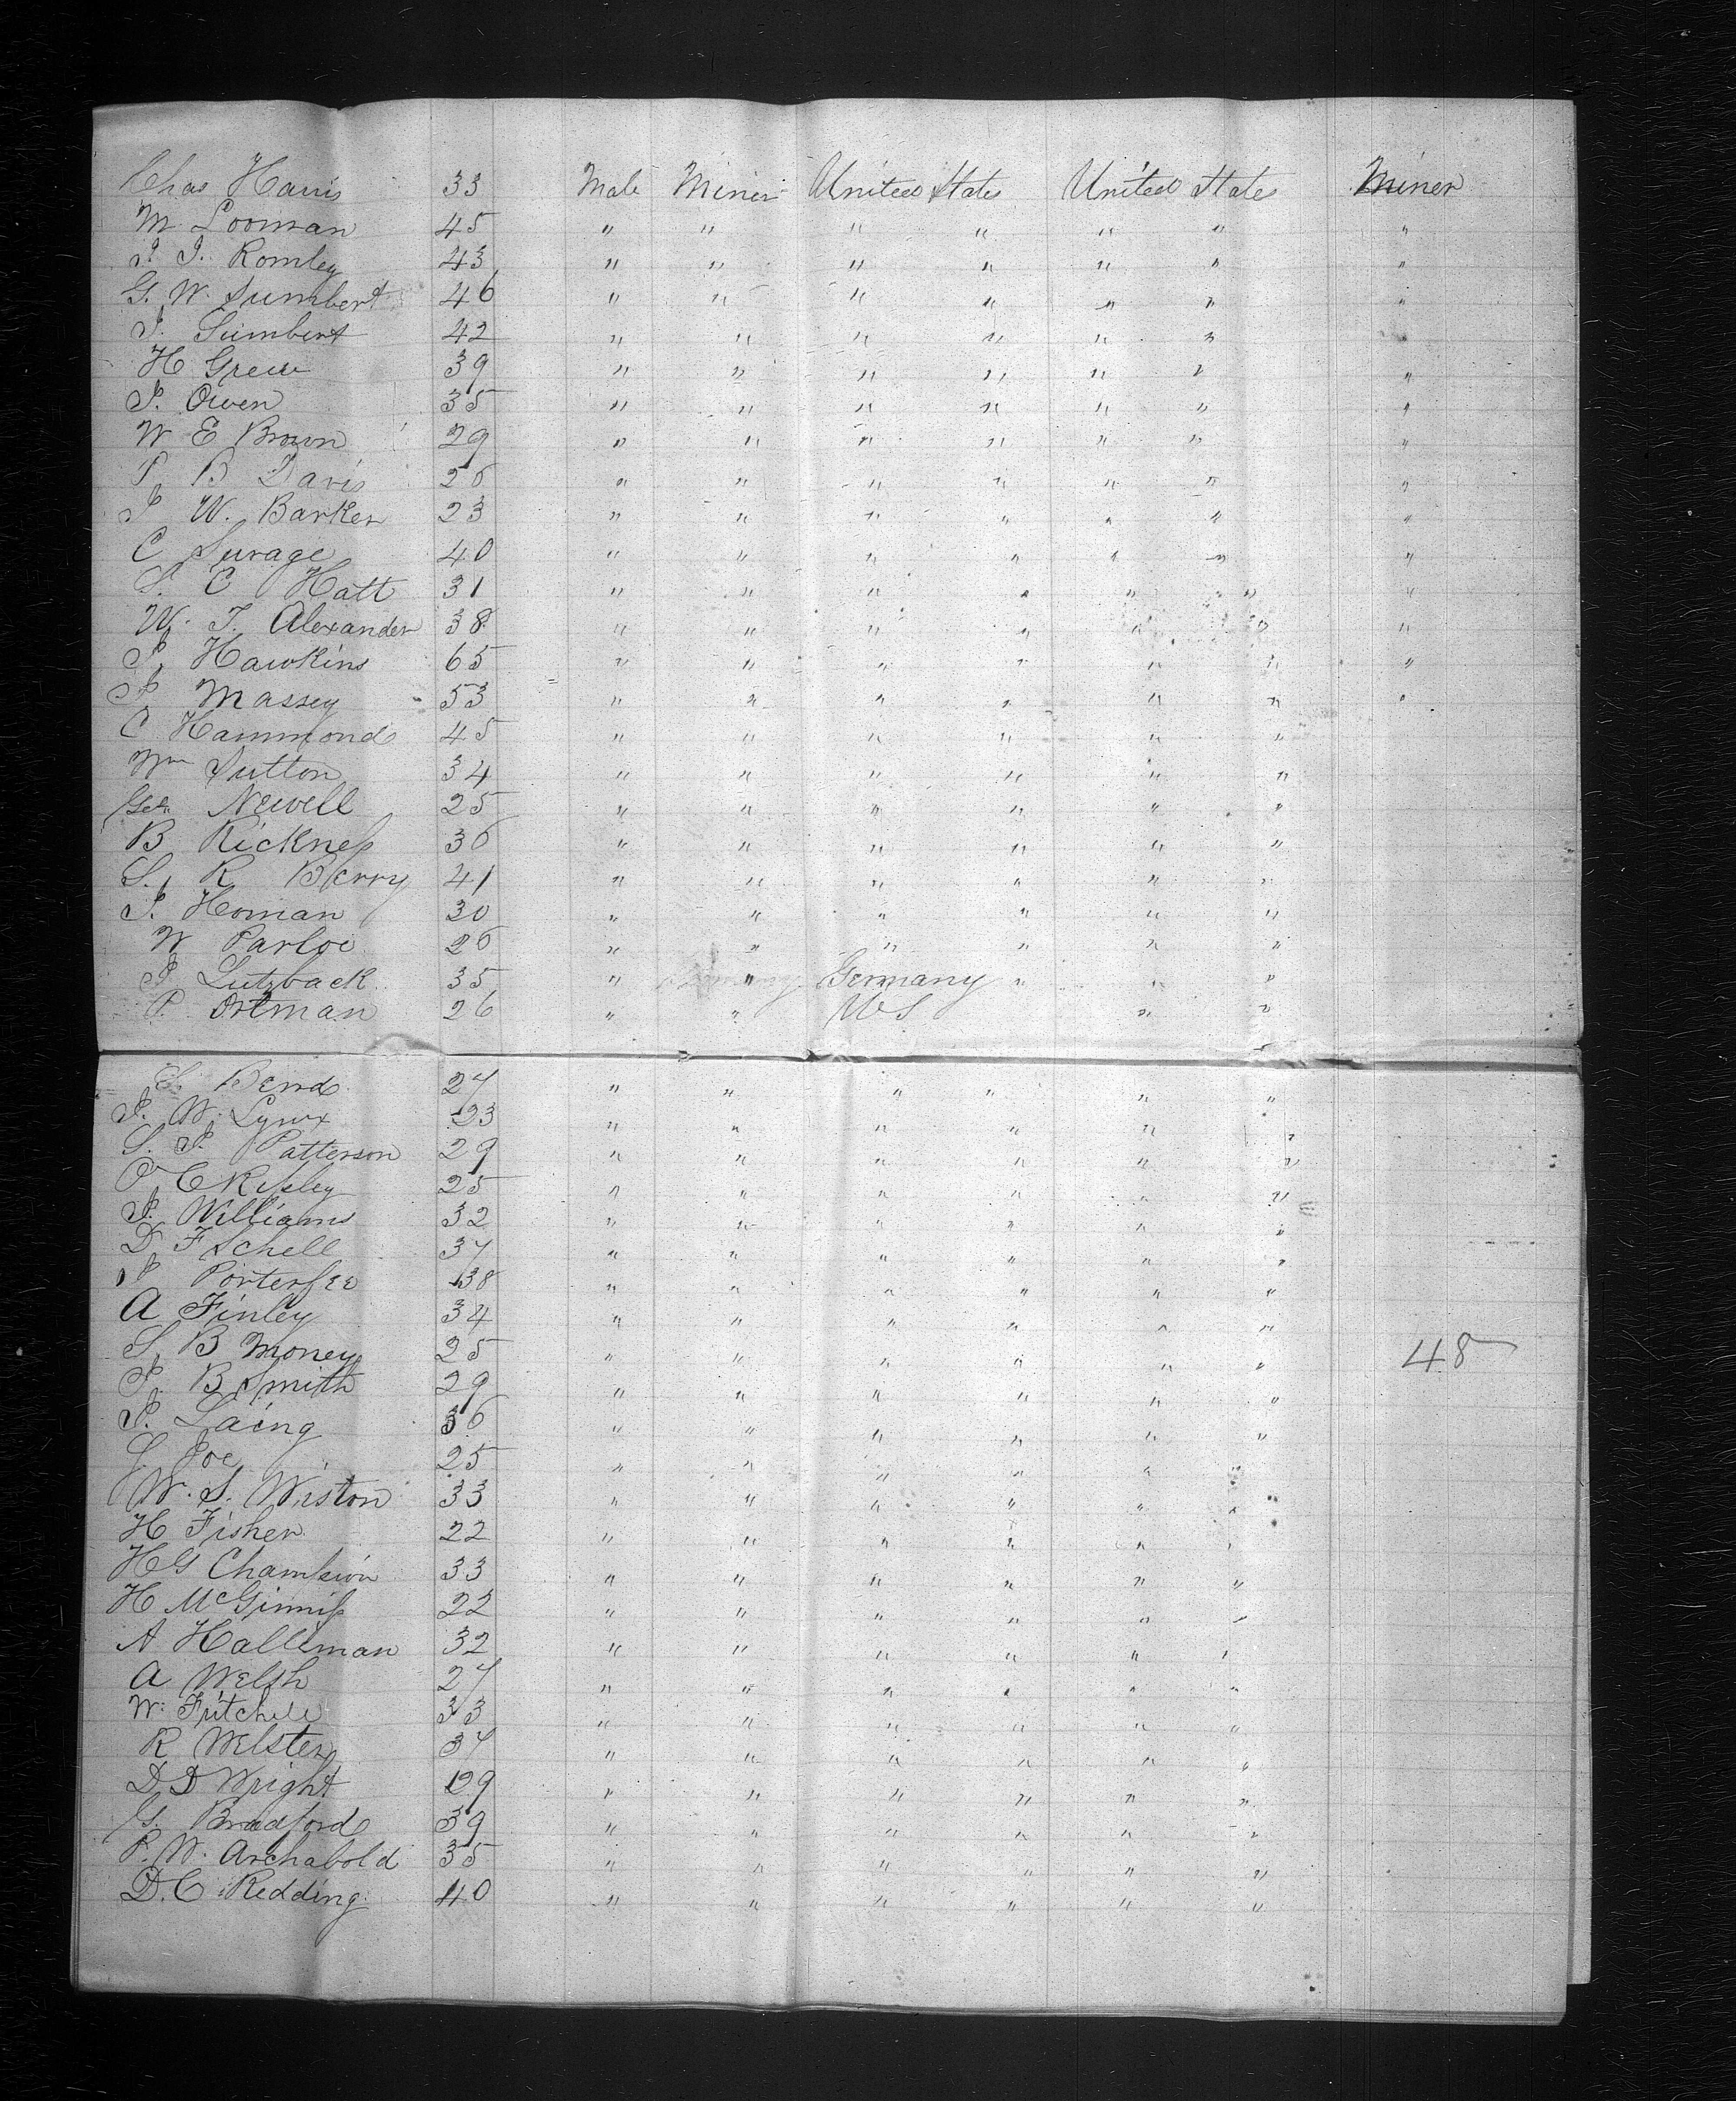 Chas Harris 33 Male Miner United States United States Miner
M. Looman 45 " " " " " " "
J. J. Romley 43 " " " " " " "
G. W. Lumbert 46 " " " " " " "
J. Lumbert 42 " " " " " " "
H Greer 39 " " " " " " "
J. Owen 35 " " " " " " "
W E Brown 29 " " " " " " "
P B Davis 26 " " " " " " "
J W. Barker 23 " " " " " " "
C Surage 40 " " " " " " "
S. C Hatt 31 " " " " " " "
W. T. Alexander 38 " " " " " " "
J. Hawkins 65 " " " " " " "
J. Massey 53 " " " " " " "
C Hammond 45 " " " " " "
Wm Sutton 34 " " " " " "
Geo. Newell 25 " " " " " "
B Rickness 36 " " " " " "
S. R Berry 41 " " " " " "
J. Homan 30 " " " " " "
W Parloe 26 " " " " " "
J Lutzback 35 " " Germany " " "
P. Ortman 26 " " US " "
S. Bend 27 " " " " " "
J. W. Lynx 23 " " " " " "
S. J. Patterson 29 " " " " " "
O C Risley 25 " " " " " "
J. Williams 32 " " " " " "
D F Schell 37 " " " " " "
J Porterfee 38 " " " " " "
A Finley 34 " " " " " "
S. B Money 25 " " " " " " 48
J. B Smith 29 " " " " " "
J. Laing 36 " " " " " "
Joe 25 " " " " " "
W. S. Wiston 33 " " " " " "
H Fisher 22 " " " " " "
H G Champion 33 " " " " " "
H McGinniss 22 " " " " " "
A Halleman 32 " " " " " "
A Welsh 27 " " " " " "
W. Fritchele 33 " " " " " "
R Welster 37 " " " " " "
D. D Wright 29 " " " " " "
G. Bradford 39 " " " " " "
P. W. Archabold 35 " " " " " "
D. C. Redding 40 " " " " " "